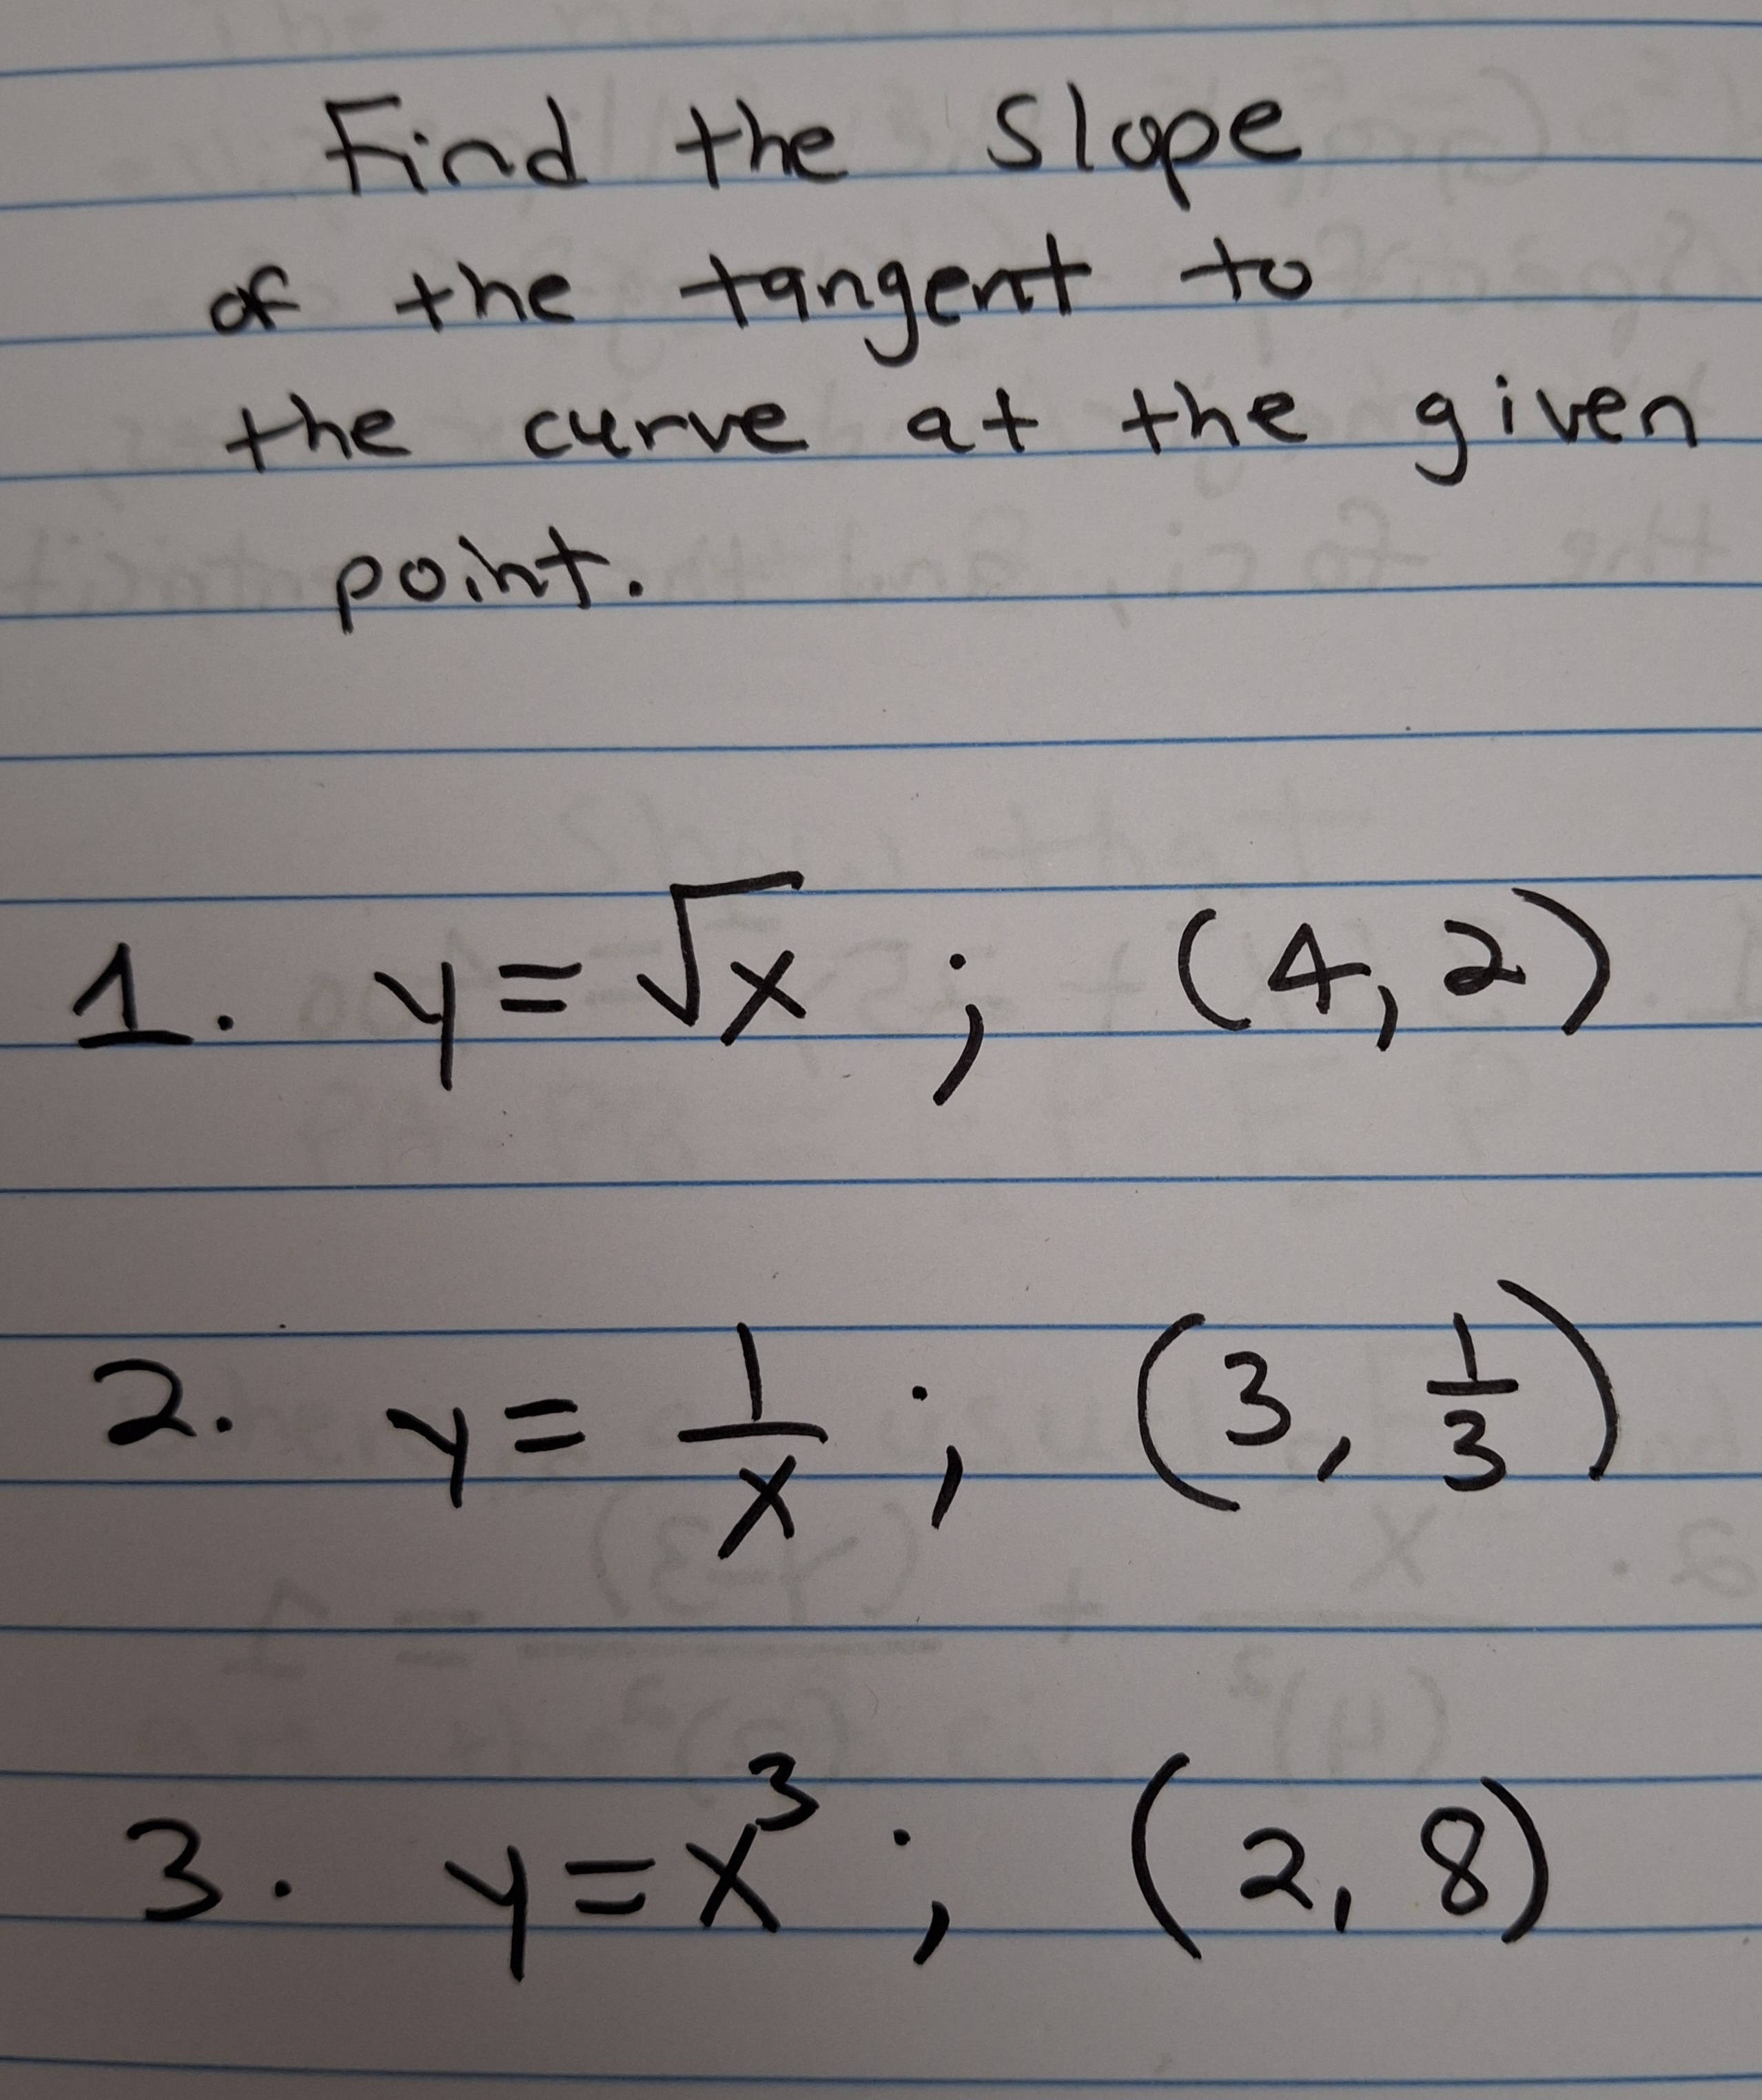 Find the slope
of the tangent to
the curve at the given
point.
1. y = √x ; (4, 2)
2. y = 1/x ; (3, 1/3)
3. y = x³ ; (2, 8)